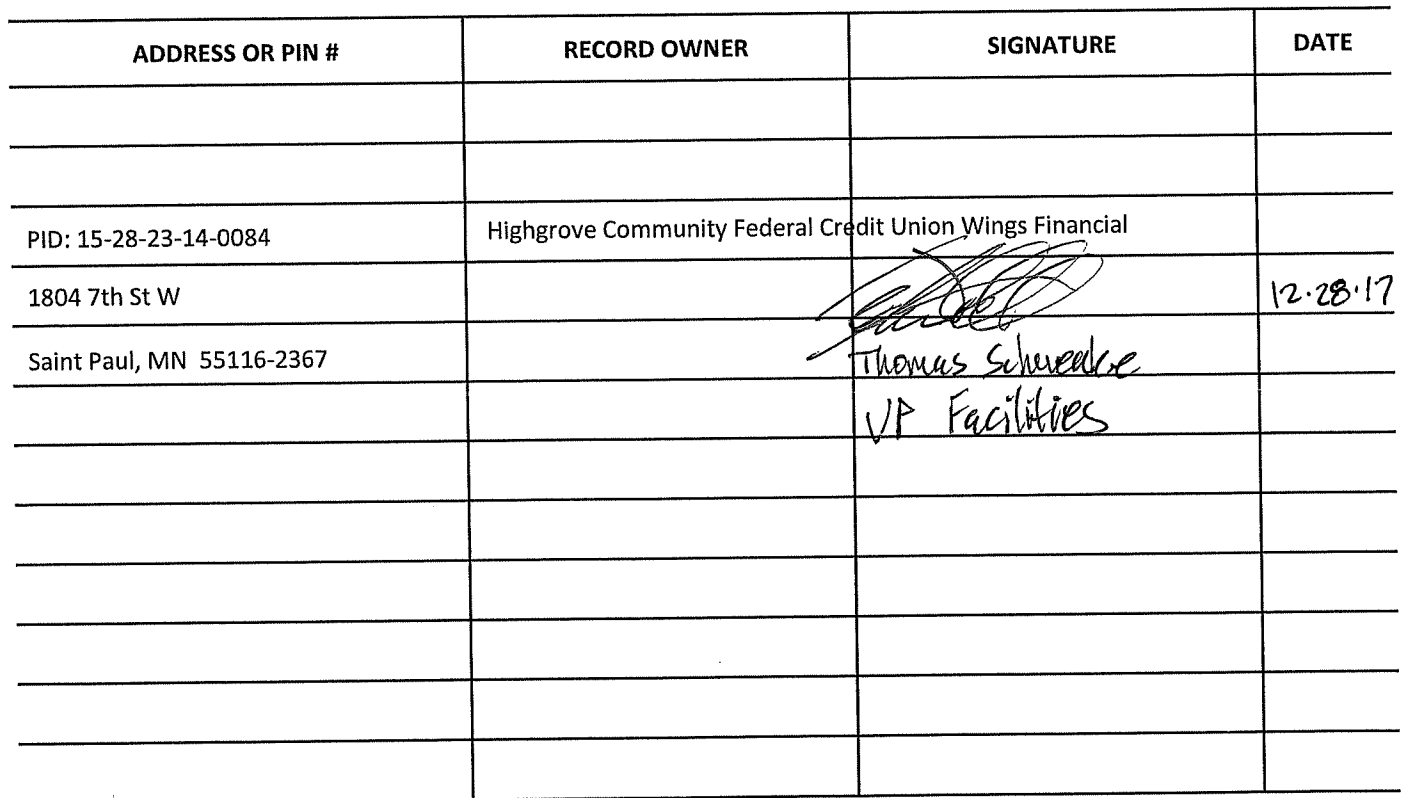 ADDRESS OR PIN # RECORD OWNER SIGNATURE DATE
PID: 15-28-23-14-0084 Highgrove Community Federal Credit Union Wings Financial
1804 7th St W 12·28·17
Saint Paul, MN 55116-2367 Thomas
VP Facilities